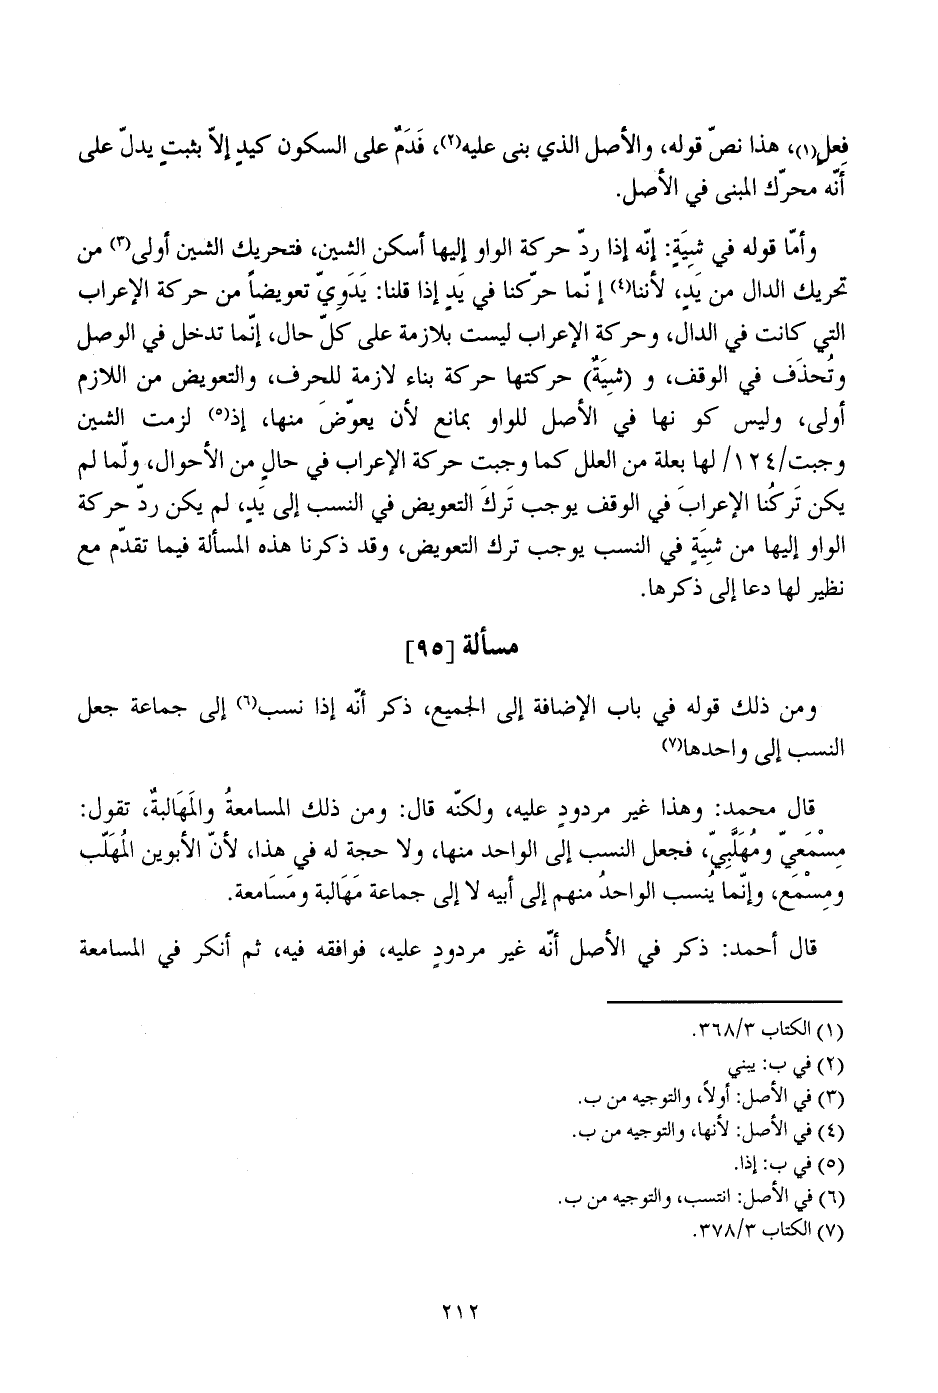 فِعلٍ(١)، هذا نصّ قوله، والأصل الذي بنى عليه(٢)، فَدَمٌ على السكون كيدٍ إلاّ بثبتٍ يدلّ على
أنّه محرّك المبنى في الأصل.
وأمّا قوله في شِيَةٍ: إنّه إذا ردّ حركة الواو إليها أسكن الشين، فتحريك الشين أولى(٣) من
تحريك الدال من يَدٍ، لأننا(٤) إنّما حركنا في يَدٍ إذا قلنا: يَدَوِيّ تعويضاً من حركة الإعراب
التي كانت في الدال، وحركة الإعراب ليست بلازمة على كلّ حال، إنّما تدخل في الوصل
وتُحذَف في الوقف، و (شِيَةٌ) حركتها حركة بناء لازمة للحرف، والتعويض من اللازم
أولى، وليس كو نها في الأصل للواو بمانع لأن يعوّضَ منها، إذ(٥) لزمت الشين
وجبت/١٢٤/ لها بعلة من العلل كما وجبت حركة الإعراب في حالٍ من الأحوال، ولّما لم
يكن تَركُنا الإعرابَ في الوقف يوجب تَركَ التعويض في النسب إلى يَدٍ، لم يكن ردّ حركة
الواو إليها من شِيَةٍ في النسب يوجب ترك التعويض، وقد ذكرنا هذه المسألة فيما تقدّم مع
نظير لها دعا إلى ذكرها.
مسألة [٩٥]
ومن ذلك قوله في باب الإضافة إلى الجميع، ذكر أنّه إذا نسب(٦) إلى جماعة جعل
النسب إلى واحدها(٧)
قال محمد: وهذا غير مردودٍ عليه، ولكنّه قال: ومن ذلك المسامعةُ والمَهَالبةٌ، تقول:
مِسْمَعيّ ومُهَلَّبِيّ، فجعل النسب إلى الواحد منها، ولا حجة له في هذا، لأنّ الأبوين المُهَلّب
ومِسْمَع، وإنّما يُنسب الواحدُ منهم إلى أبيه لا إلى جماعة مَهَالبة ومَسَامعة.
قال أحمد: ذكر في الأصل أنّه غير مردودٍ عليه، فوافقه فيه، ثم أنكر في المسامعة
(١) الكتاب ٣٦٨/٣.
(٢) في ب: يبني
(٣) في الأصل: أولاً، والتوجيه من ب.
(٤) في الأصل: لأنها، والتوجيه من ب.
(٥) في ب: إذا.
(٦) في الأصل: انتسب، والتوجيه من ب.
(٧) الكتاب ٣٧٨/٣.
٢١٢